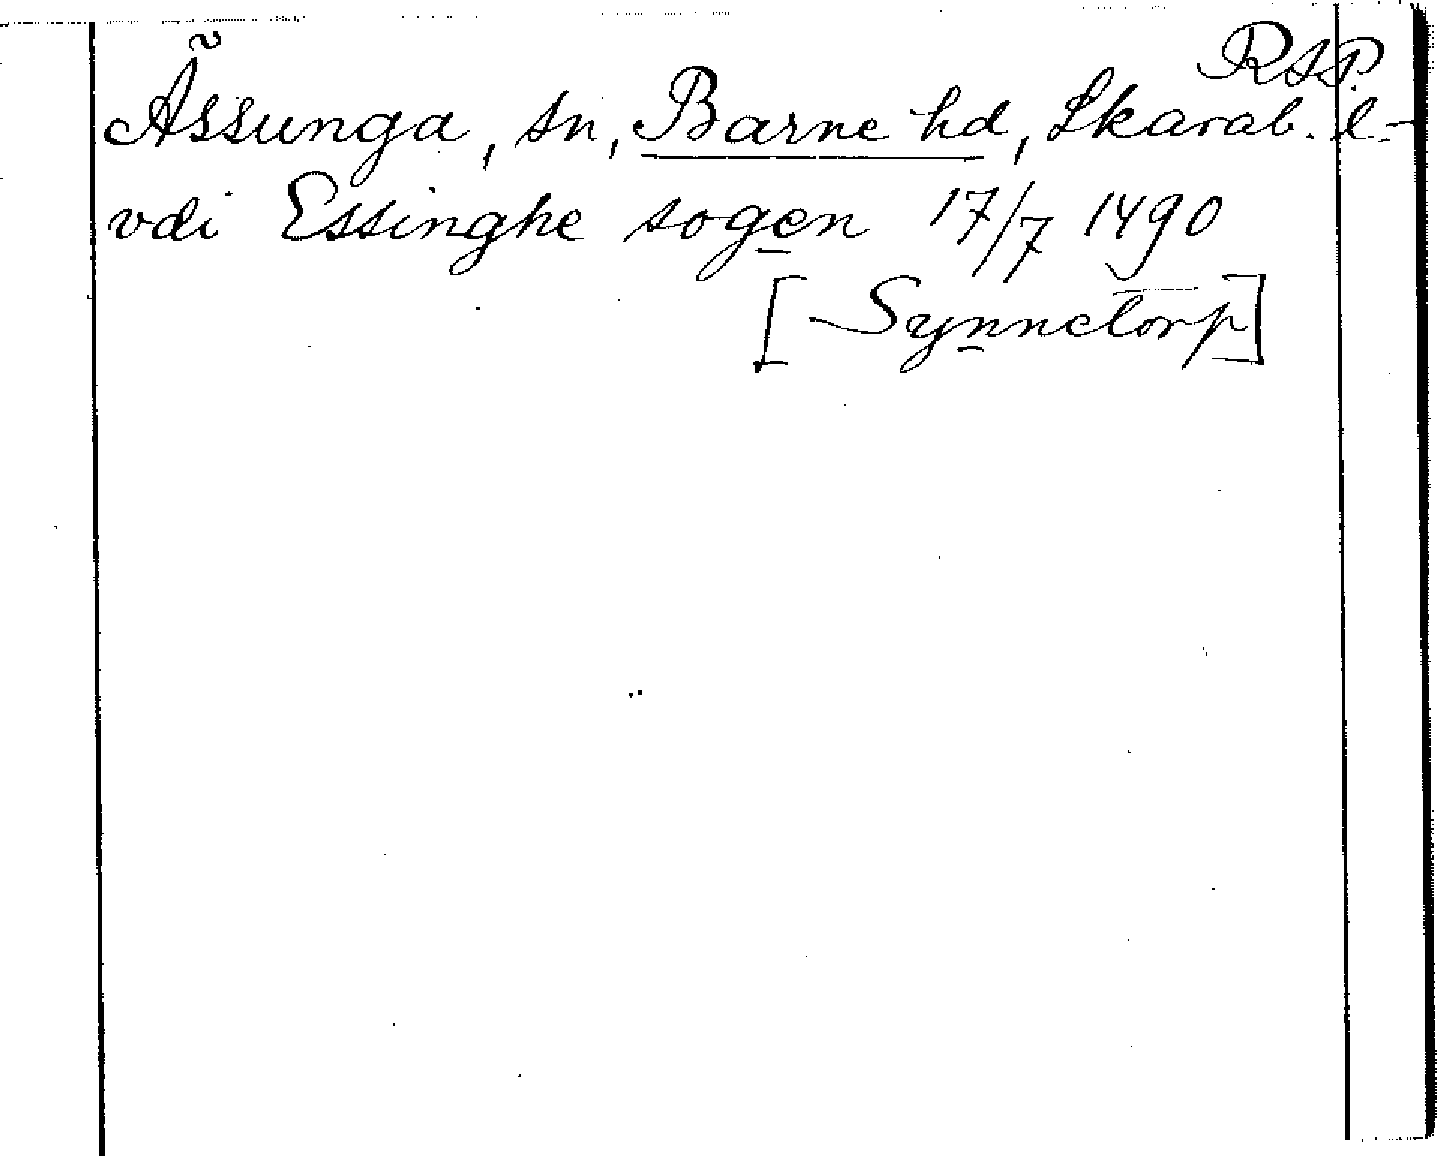 RAP.
Ässunga, sn, Barne hd, Skarab. l.
vdi Essinghe sogen 17/7 1490
[Synnetorp]